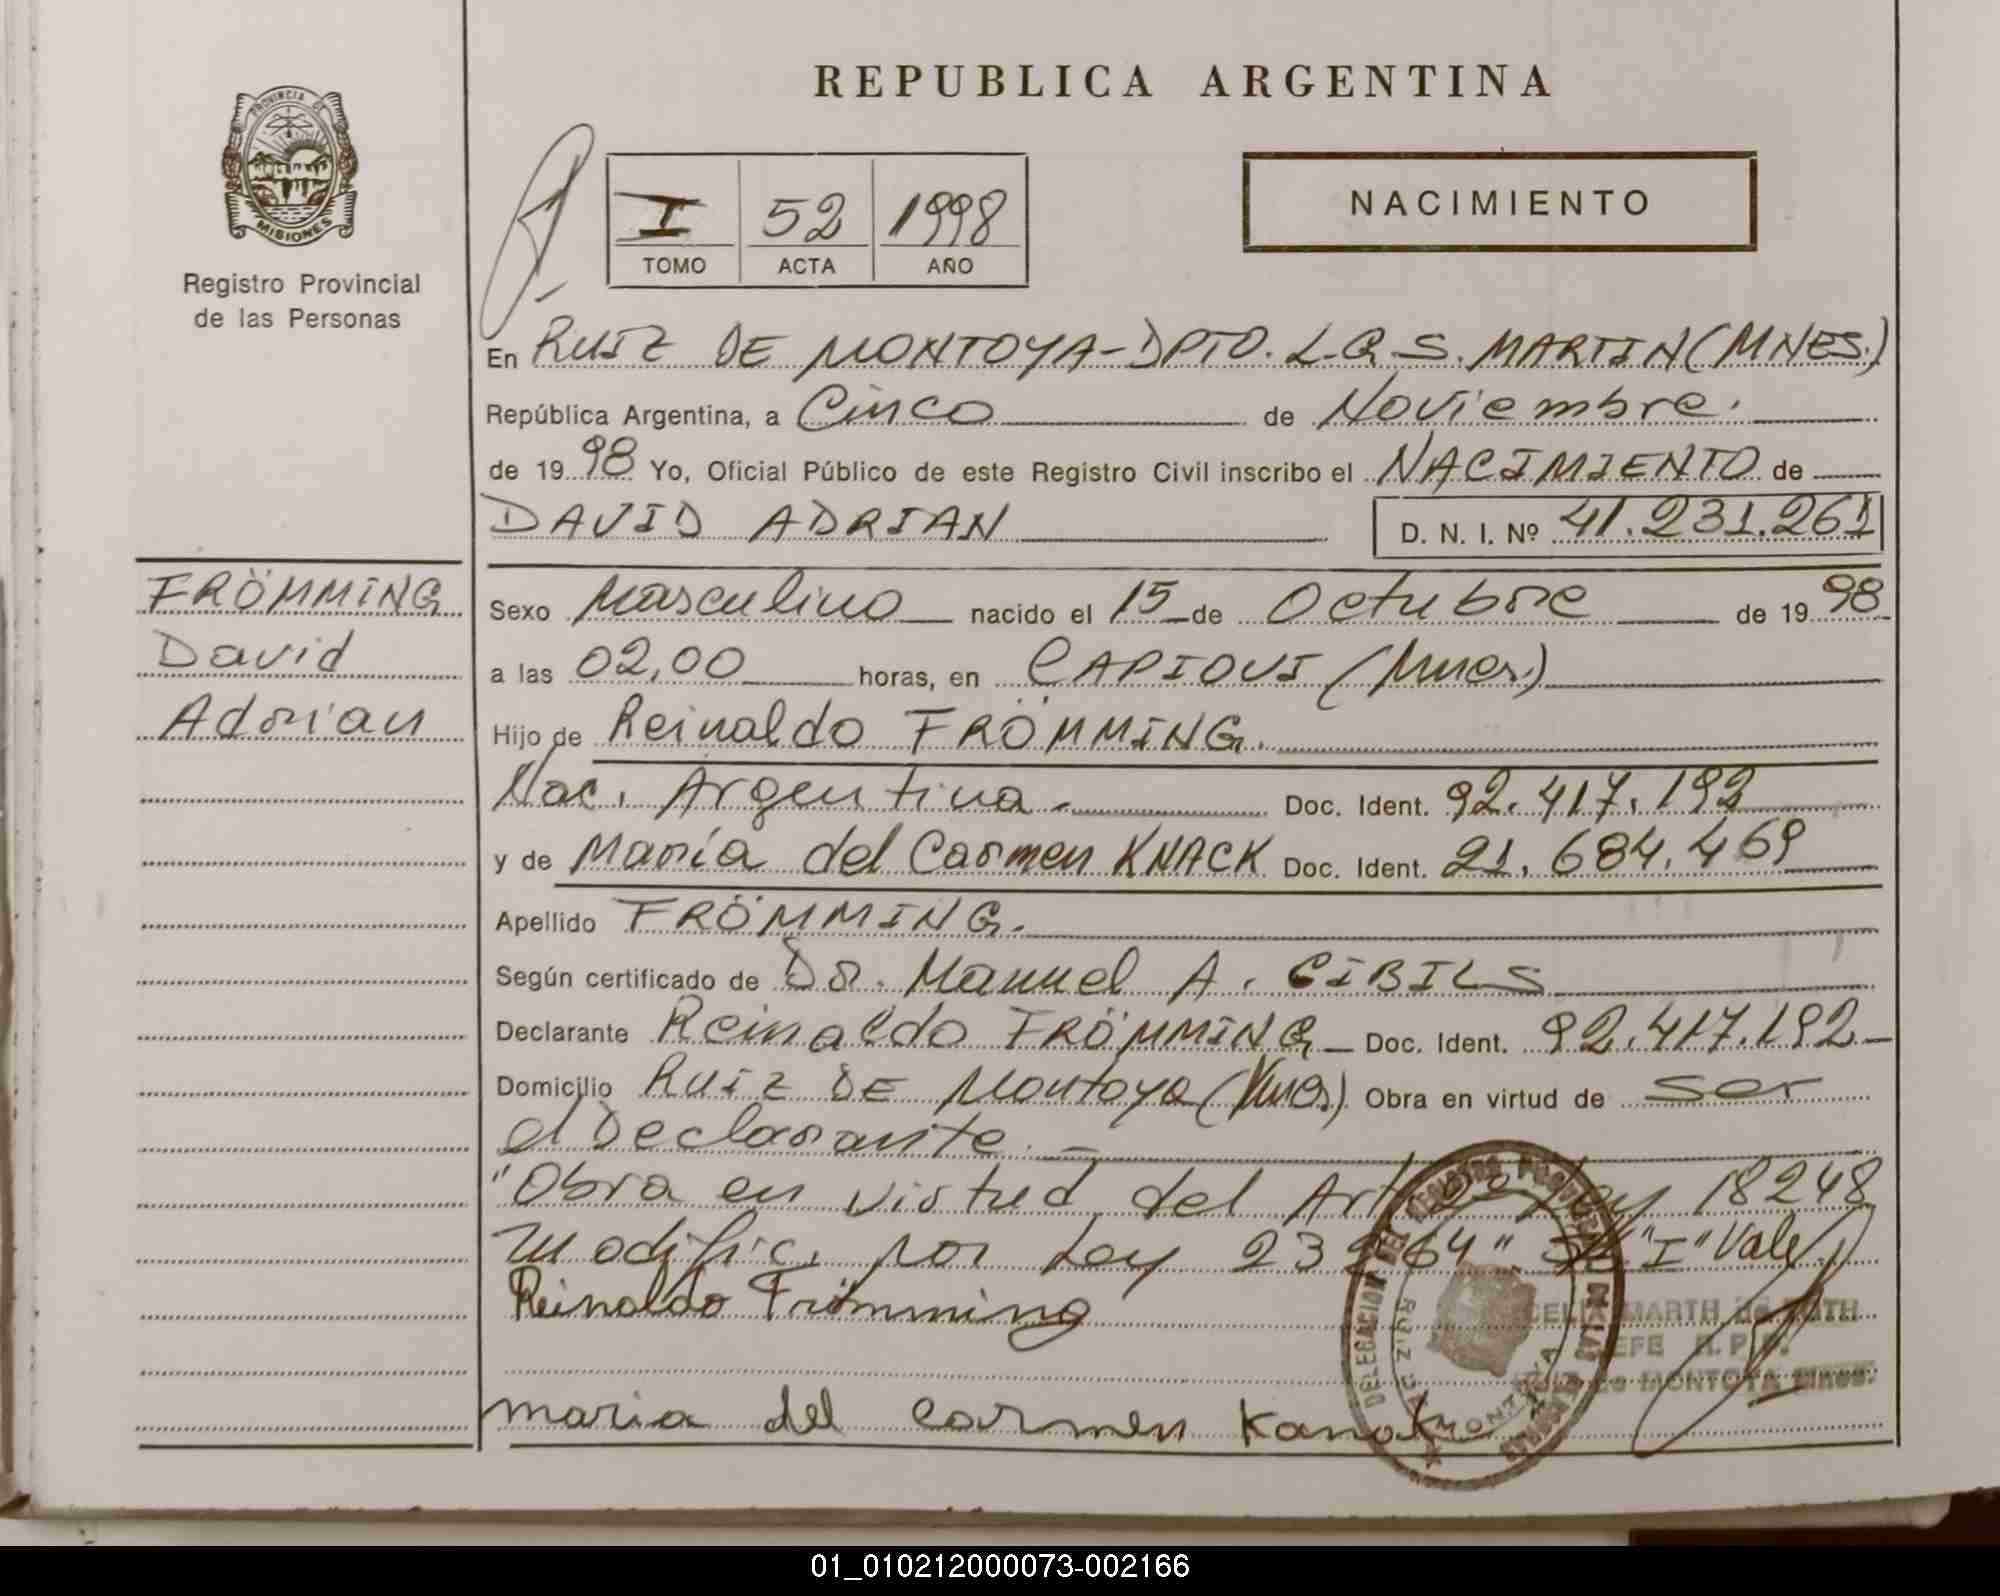 REPUBLICA ARGENTINA
PROVINCIA DE
MISIONES
Registro Provincial
de las Personas
I 52 1998
TOMO ACTA AÑO
NACIMIENTO
En RUIZ DE MONTOYA-DPTO. L.G.S. MARTIN (MNES.)
República Argentina, a Cinco de Noviembre.
de 1998 Yo, Oficial Público de este Registro Civil inscribo el NACIMIENTO de
DAVID ADRIAN D. N. I. Nº 41.231.261
FRÖMMING
David
Adrian
Sexo Masculino nacido el 15 de Octubre de 1998
a las 02,00 horas, en CAPIOVI (Mnes.)
Hijo de Reinaldo FRÖMMING.
Nac. Argentina. Doc. Ident. 92.417.192
y de María del Carmen KNACK Doc. Ident. 21.684.469
Apellido FRÖMMING.
Según certificado de Dr. Manuel A. CIBILS
Declarante Reinaldo FRÖMMING Doc. Ident. 92.417.192
Domicilio RUIZ DE Montoya (Mnes.) Obra en virtud de ser
el Declarante.
"Obra en virtud del Art. Ley 18248
modific. por Ley 23264" "I" Vale
Reinaldo Frömming
CELIA MARTH de ROTH
JEFE R.P.P.
RUIZ de MONTOYA MNES.
maria del carmen Kanak
DELEGACION DEL REGISTRO PROVINCIAL DE LAS PERSONAS
RUIZ DE MONTOYA
01_010212000073-002166